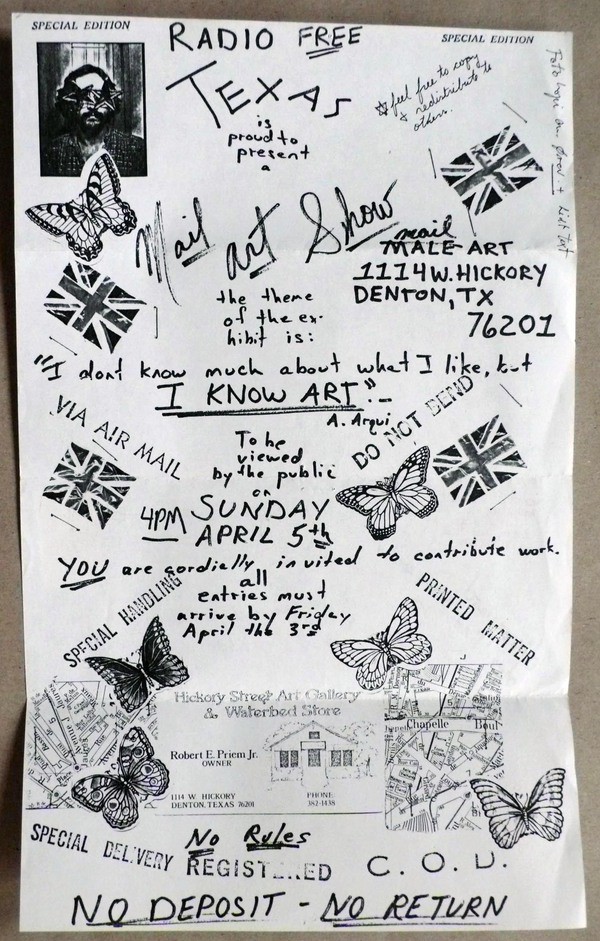 SPECIAL EDITION
RADIO FREE
SPECIAL EDITION
TEXAS
is
proud to
present
a
feel free to copy
& redistribute to
others.
Mail art Show
mail
MALE ART
1114 W. HICKORY
DENTON, TX
76201
the theme
of the ex-
hibit is:
"I dont know much about what I like, but
I KNOW ART".-
A. Arqui
VIA AIR MAIL
DO NOT BEND
To be
viewed
by the public
on
4PM SUNDAY
APRIL 5th
YOU are cordially invited to contribute work.
all
entries must
arrive by Friday
April the 3rd
SPECIAL HANDLING
PRINTED MATTER
Hickory Street Art Gallery
& Waterbed Store
Robert E. Priem Jr.
OWNER
1114 W. HICKORY
DENTON, TEXAS 76201
PHONE
382-1438
Chapelle Boul
No Rules
SPECIAL DELIVERY
REGISTERED
C. O. D.
NO DEPOSIT - NO RETURN